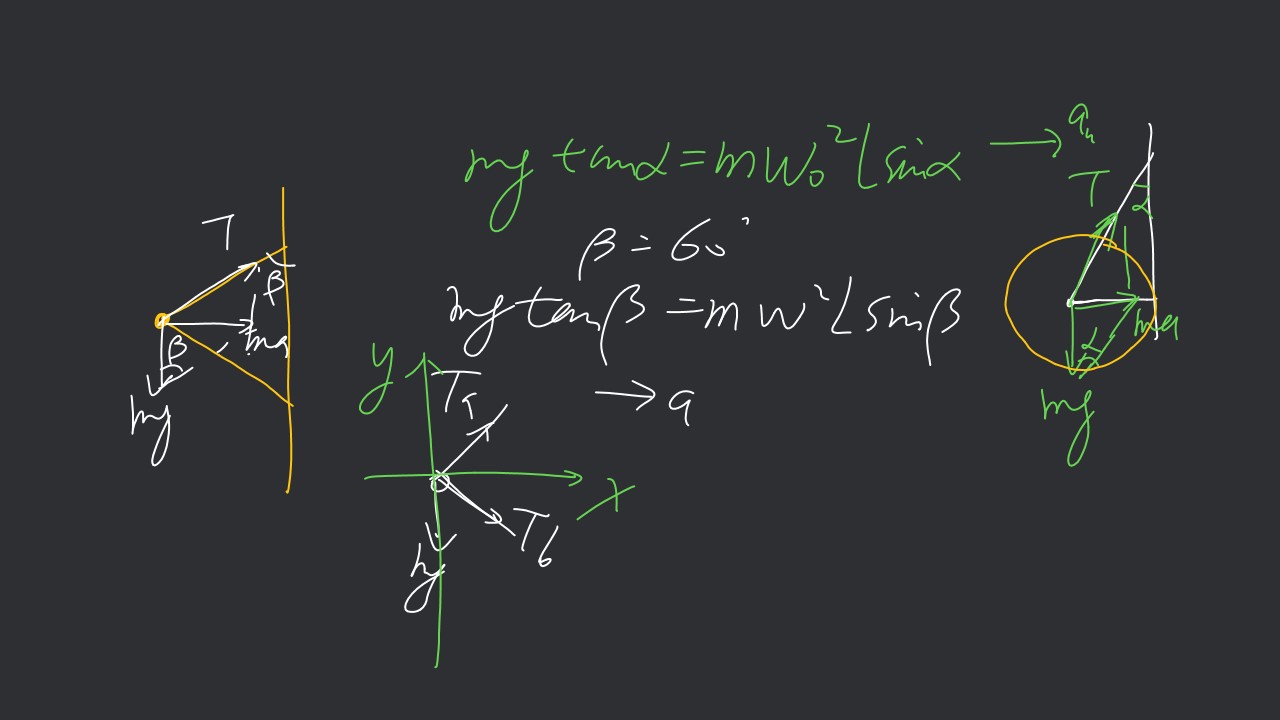 mg tanα = mω₀²l sinα → aₙ
β = 60°
mg tanβ = mω²l sinβ
→ a
T
β
ma
β
mg
y
Ta
x
Tb
mg
T
α
ma
α
mg